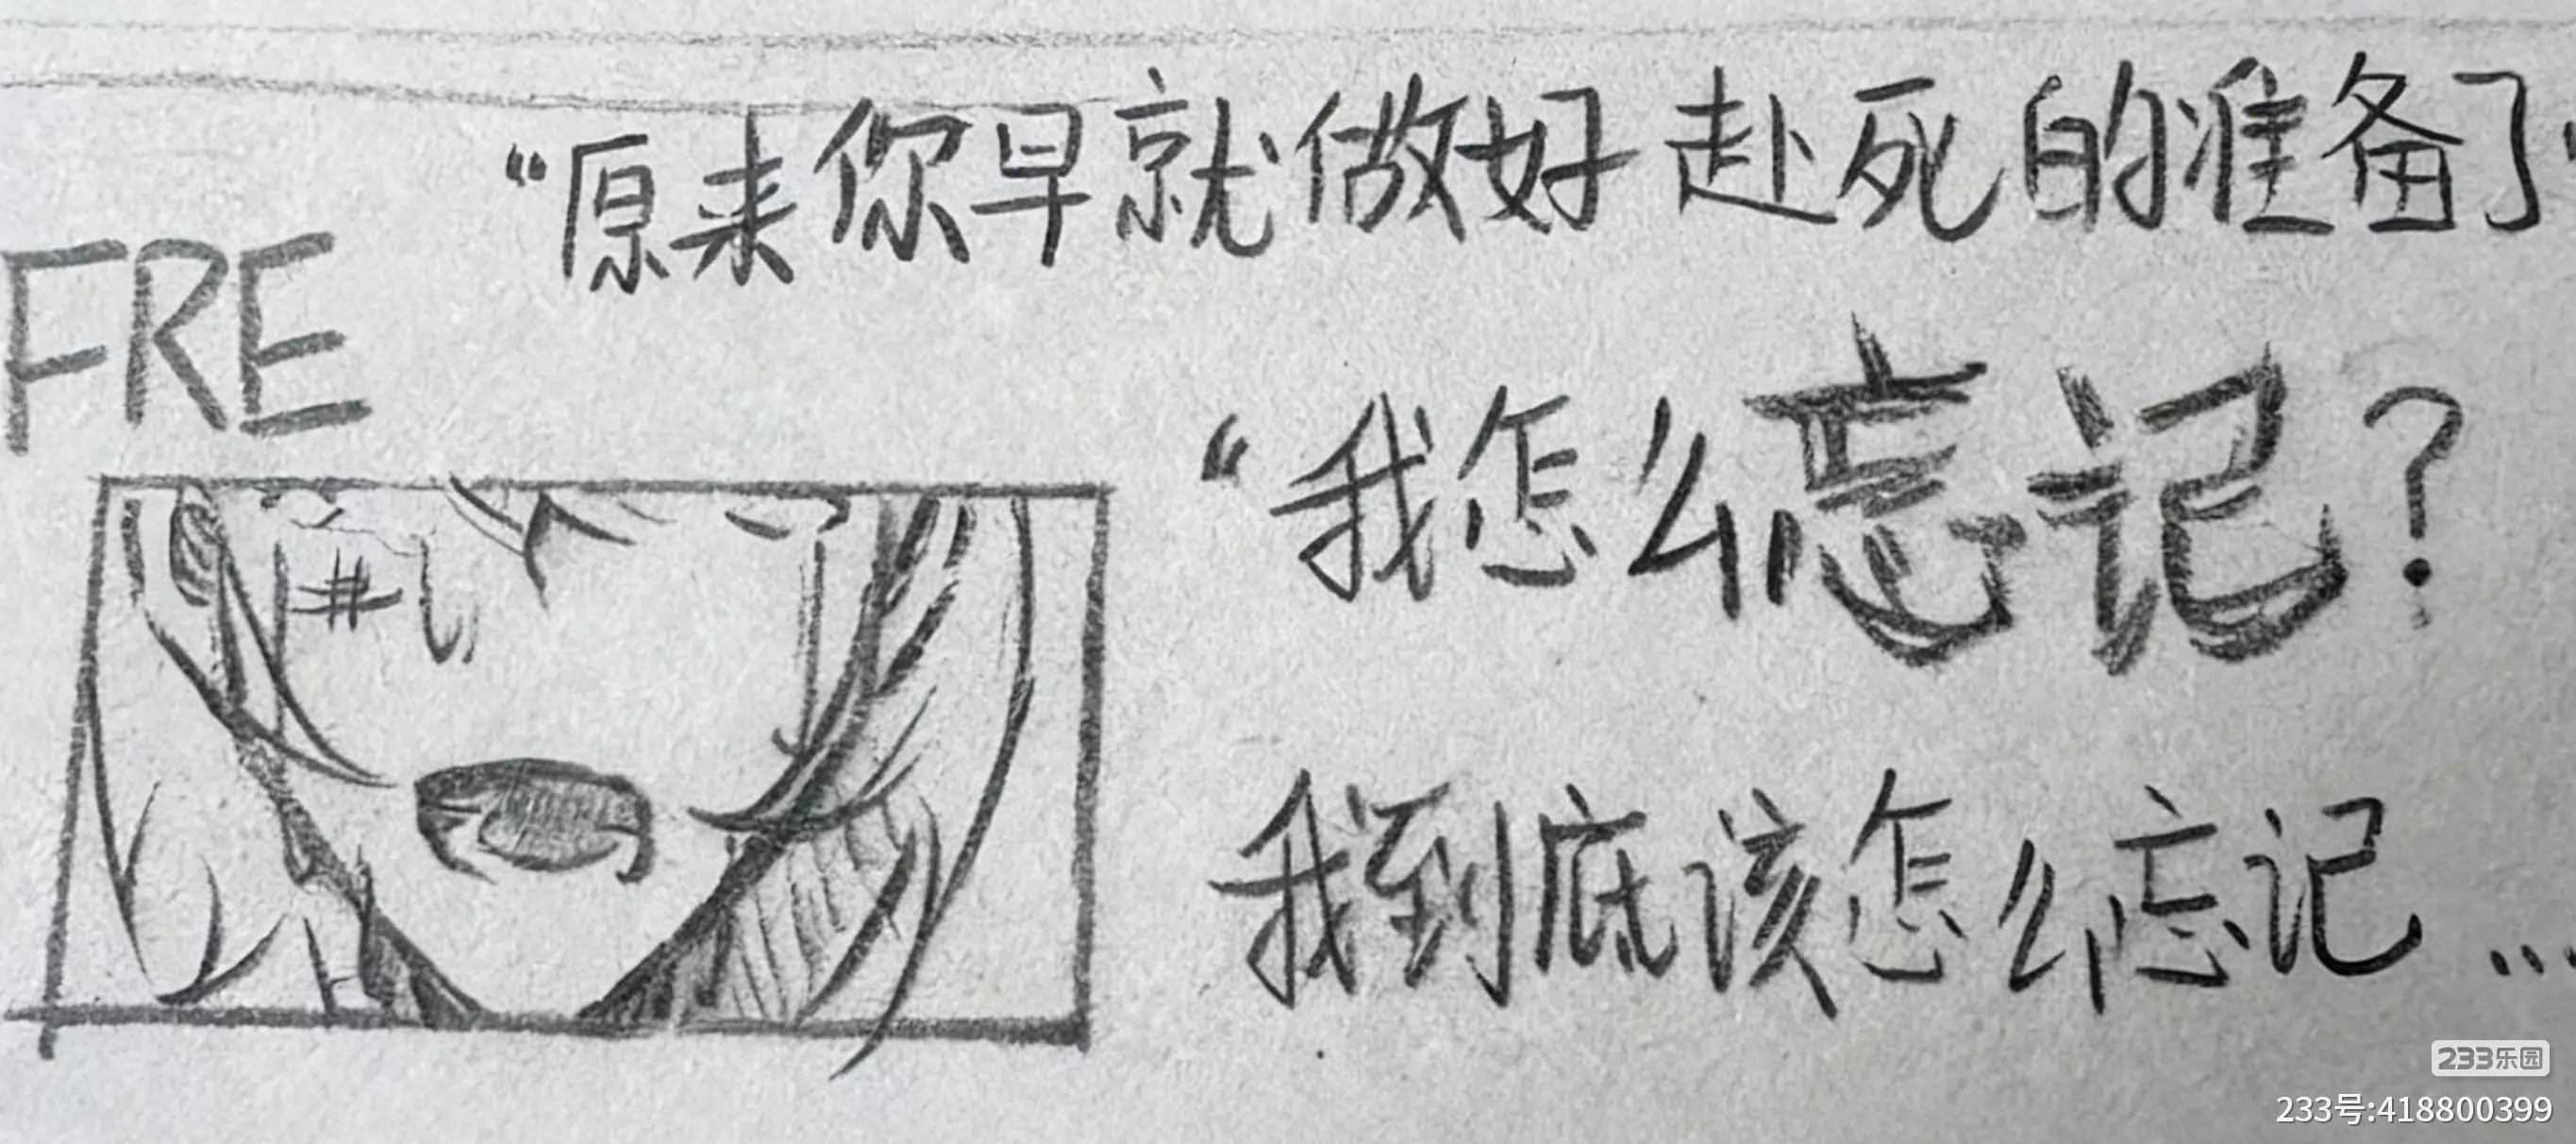 “原来你早就做好赴死的准备了“
FRE
“我怎么忘记？
我到底该怎么忘记...
233乐园
233号:418800399